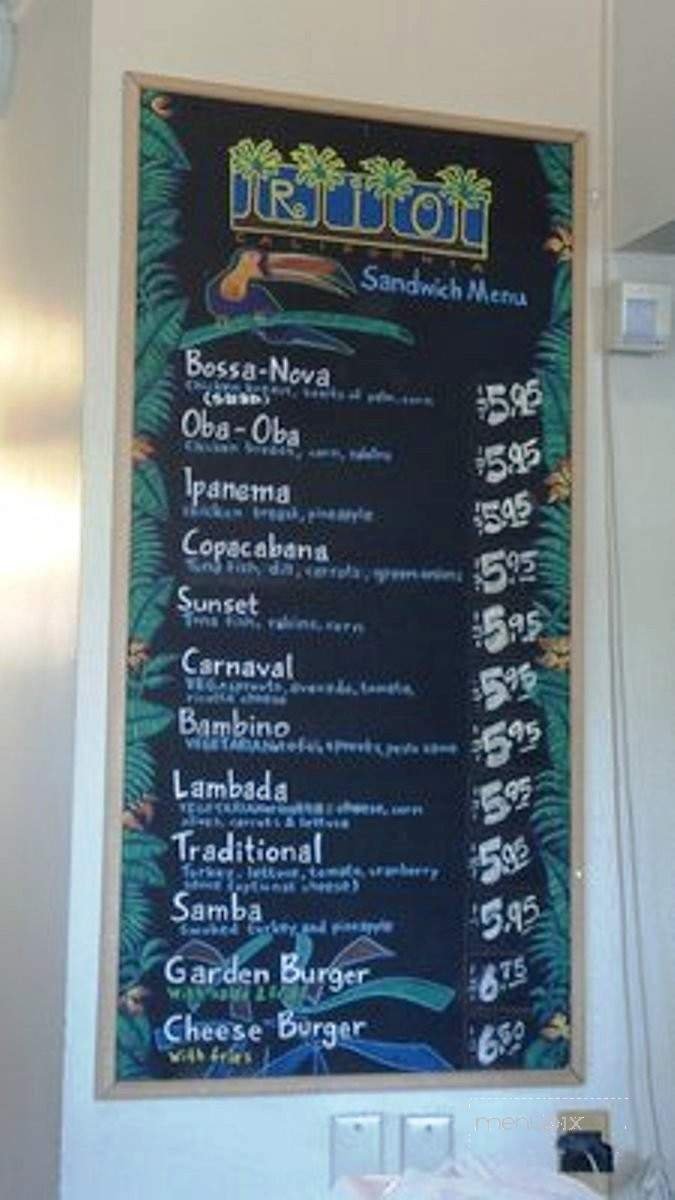 RIO
CALIFORNIA
Sandwich Menu
Bossa-Nova
Chicken breast, hearts of palm, corn
$5.95
Oba-Oba
Chicken breast, corn, raisins
$5.95
Ipanema
Chicken breast, pineapple
$5.95
Copacabana
Tuna fish, dill, carrots, green onions
$5.95
Sunset
Tuna fish, raisins, corn
$5.95
Carnaval
sprouts, avocado, tomato,
ricotta cheese
$5.95
Bambino
VEGETARIAN sprouts, pesto
$5.95
Lambada
VEGETARIAN cheese, corn
olives, carrots & lettuce
$5.95
Traditional
Turkey, lettuce, tomato, cranberry
sauce (optional cheese)
$5.95
Samba
Smoked turkey and pineapple
$5.95
Garden Burger
With
$6.75
Cheese Burger
With fries
$6.50
menupix